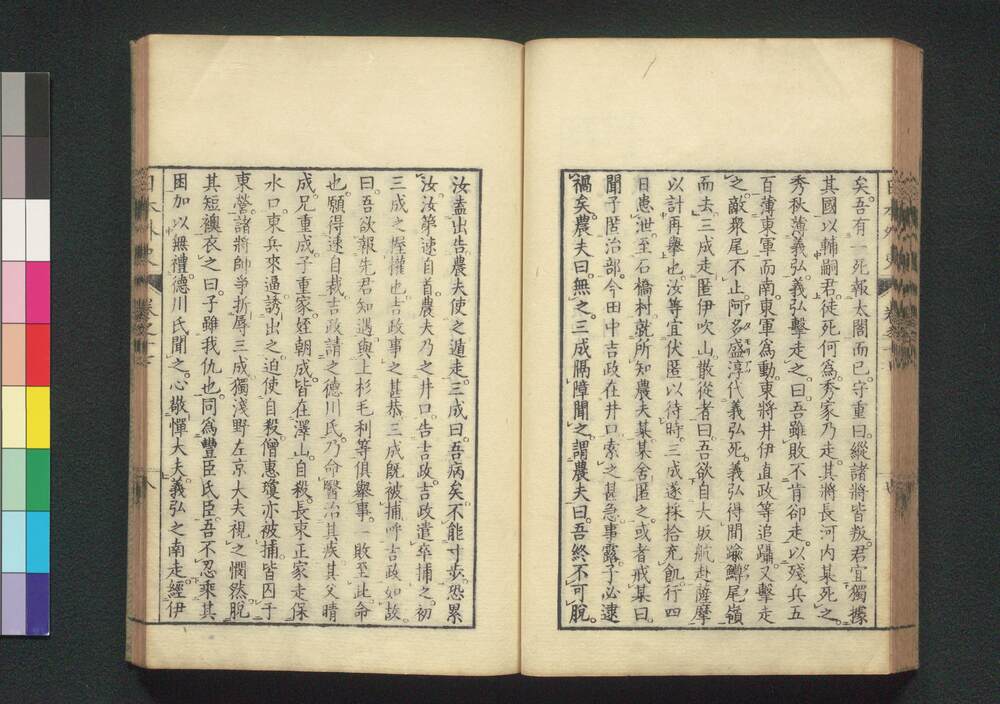 矣。吾有一死報太閤而已。守重曰。縱諸將皆叛。君宜獨據
其國以輔嗣君。徒死何爲。秀家乃走。其將長河内某死之。
秀秋薄義弘。義弘擊走之。曰。吾雖敗。不肯卻走。以殘兵五
百。薄東軍而南。東軍爲動。東將井伊直政等追躡。又擊走
之。敵衆尾不止。阿多盛淳代義弘死。義弘得間踰鱒尾嶺
而去。三成走匿伊吹山。散從者曰。吾欲自大坂航赴薩摩
以計再擧也。汝等宜伏匿以待時。三成遂採拾充飢。行四
日。患泄。至石橋村。就所知農夫某。某舍匿之。或者戒某曰。
聞子匿治部。今田中吉政在井口。索之甚急。事露。子必逮
禍矣。農夫曰。無之。三成隔障聞之。謂農夫曰。吾終不可脫。
汝盍出告。農夫使之遁走。三成曰。吾病矣。不能寸步。恐累
汝。汝第速自首。農夫乃之井口。告吉政。吉政遣卒捕之。初
三成之慳權也。吉政事之甚恭。三成既被捕。呼吉政如故。
曰。吾欲報先君知遇。與上杉毛利等俱擧事。一敗至此命
也。願得速自裁。吉政請之德川氏。乃命醫治其疾。其父晴
成。兄重成。子重家。姪朝成。皆在澤山自殺。長束正家走保
水口。東兵來逼。誘出之。迫使自殺。僧惠瓊亦被捕。皆囚于
東營。諸將帥爭折辱三成。獨淺野左京大夫視之憫然。脫
其短襖衣之曰。子雖我仇也。同爲豐臣氏臣。吾不忍乘其
困加以無禮。德川氏聞之。心敬憚大夫。義弘之南走經伊
日本外史
卷之十七
八